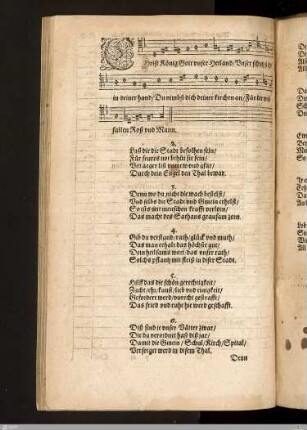 Christ König Gott unser Heiland / Unser schutz ist
in deiner hand / Du nimbst dich deiner kirchen an / Für dir muß
fallen Roß vnd Mann.
2.
Laß dir die Stadt befolhen sein /
Für fewrs not behüt sie fein /
Durch dein Engel den Thal bewar.
3.
Denn wo du nicht die wach bestelst /
Vnd selbs die Stadt vnd Gmein erhelst /
So ists mit menschen krafft verlorn /
Das macht des Sathans grausam zorn.
4.
Gib du verstand / rath / glück vnd muth /
Das man erhalt das höchste gut /
Dein heilsams wort das vnser rath /
Solchs pflantz mit fleiß in diser Stadt.
5.
Hilff das die schön gerechtigkeit /
Zucht / ehr / kunst / lieb vnd einigkeit /
Gefordert werd / vnrecht gestrafft /
Das fried vnd ruhe hie werd geschafft.
6.
Diß sind it vnser Väter zwar /
Die du verordnet hast diß jar /
Damit die Gmein / Schul / Kirch / Spital /
Versorget werd in disem Thal.
Denn